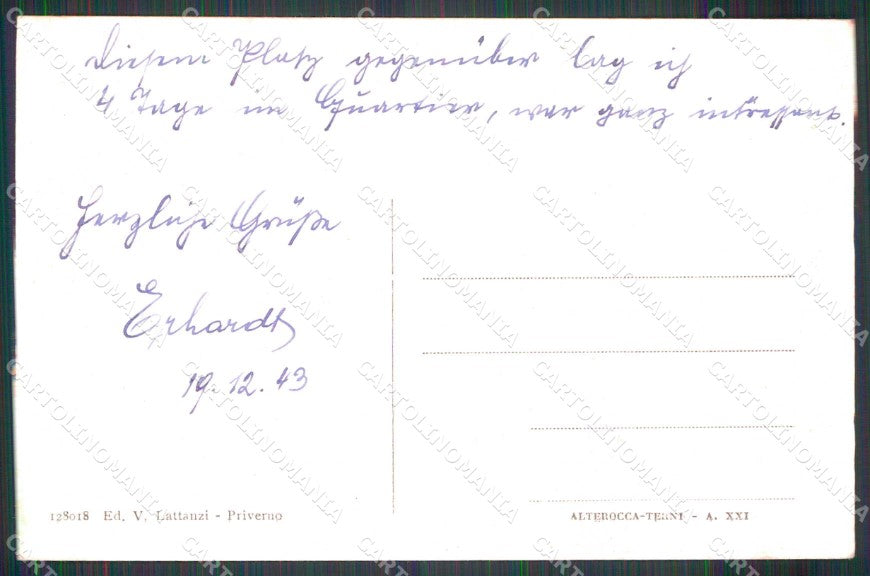 Diesem Platz gegenüber lag ich
4 Tage im Quartier, war ganz intressant.
Herzliche Grüße
Erhardt
19.12.43
128018 Ed. V. Lattanzi - Priverno
ALTEROCCA-TERNI - A. XXI
CARTOLINOMANIA